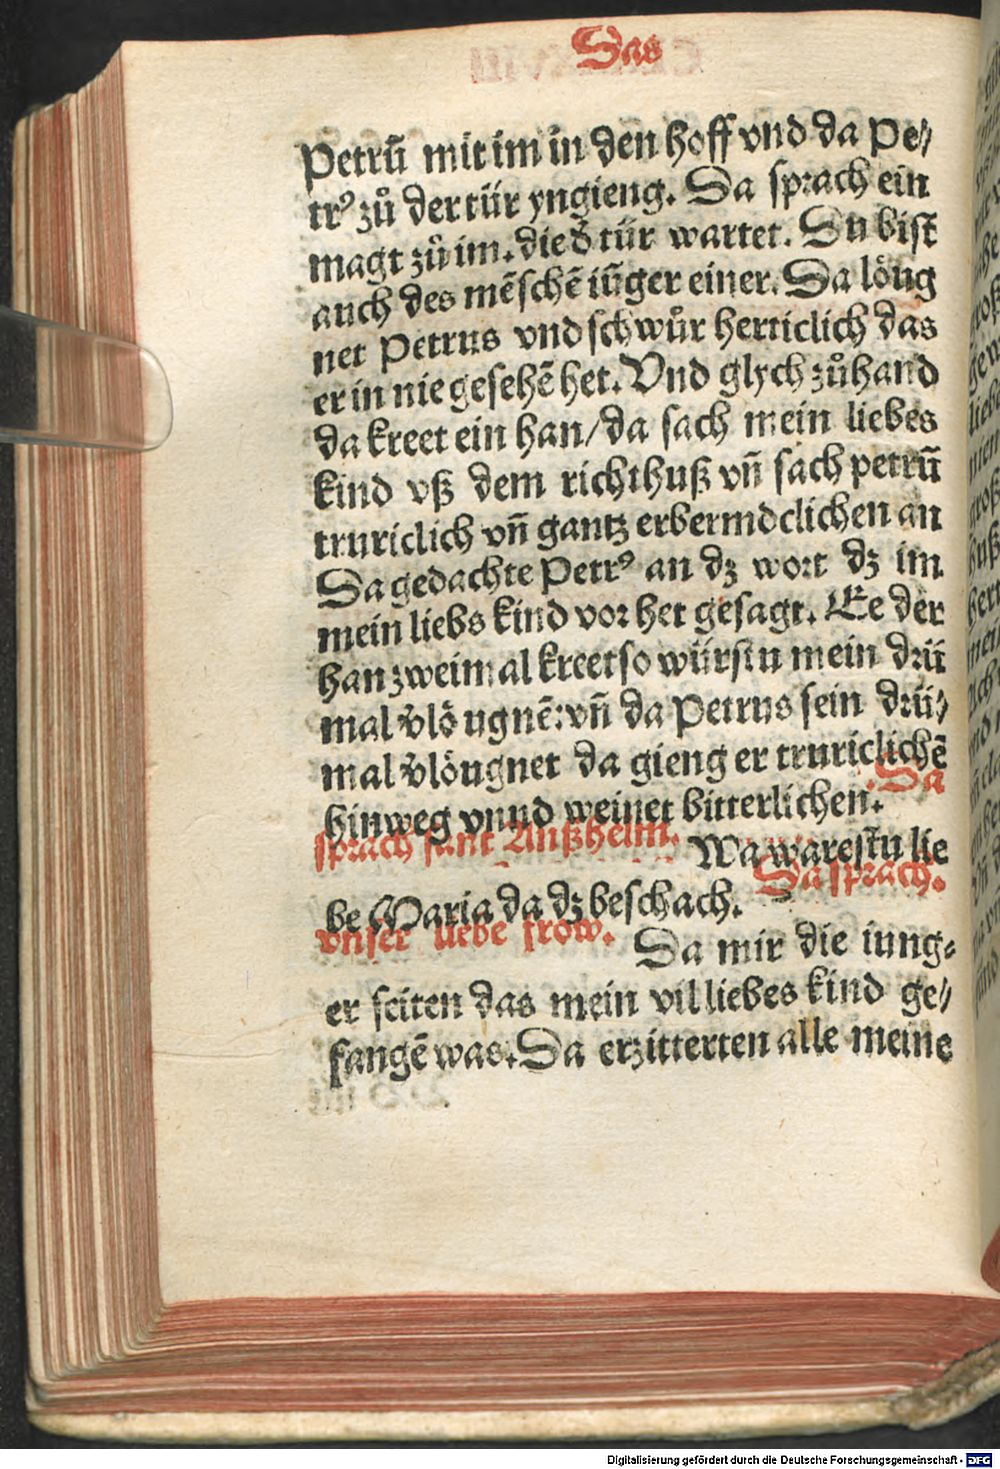 Das
Petrū mit im in den hoff vnd da Pe⸗
trꝰ zů der tür yngieng. Da sprach ein
magt zů im. die d̄ tür wartet. Du bist
auch des mēschē iūger einer. Da löug
net Petrus vnd schwůr herticlich das
er in nie gesehē het. Vnd glych zůhand
da kreet ein han/da sach mein liebes
kind vß dem richthuß vn̄ sach petrū
truriclich vn̄ gantz erbermdclichen an
Da gedachte Petrꝰ an dz wort dz im
mein liebs kind vor het gesagt. Ee der
han zweimal kreet so würstu mein drü
mal v̄löugnē: vn̄ da Petrus sein drü⸗
mal v̄löugnet da gieng er truriclichē
hinweg vnnd weinet bitterlichen. Da
sprach sant Anßhelm. Wa warestu lie
be Maria da dz beschach. Da sprach.
vnser liebe frow. Da mir die iung⸗
er seiten das mein vil liebes kind ge⸗
fangē was. Da erzitterten alle meine
Digitalisierung gefördert durch die Deutsche Forschungsgemeinschaft - DFG